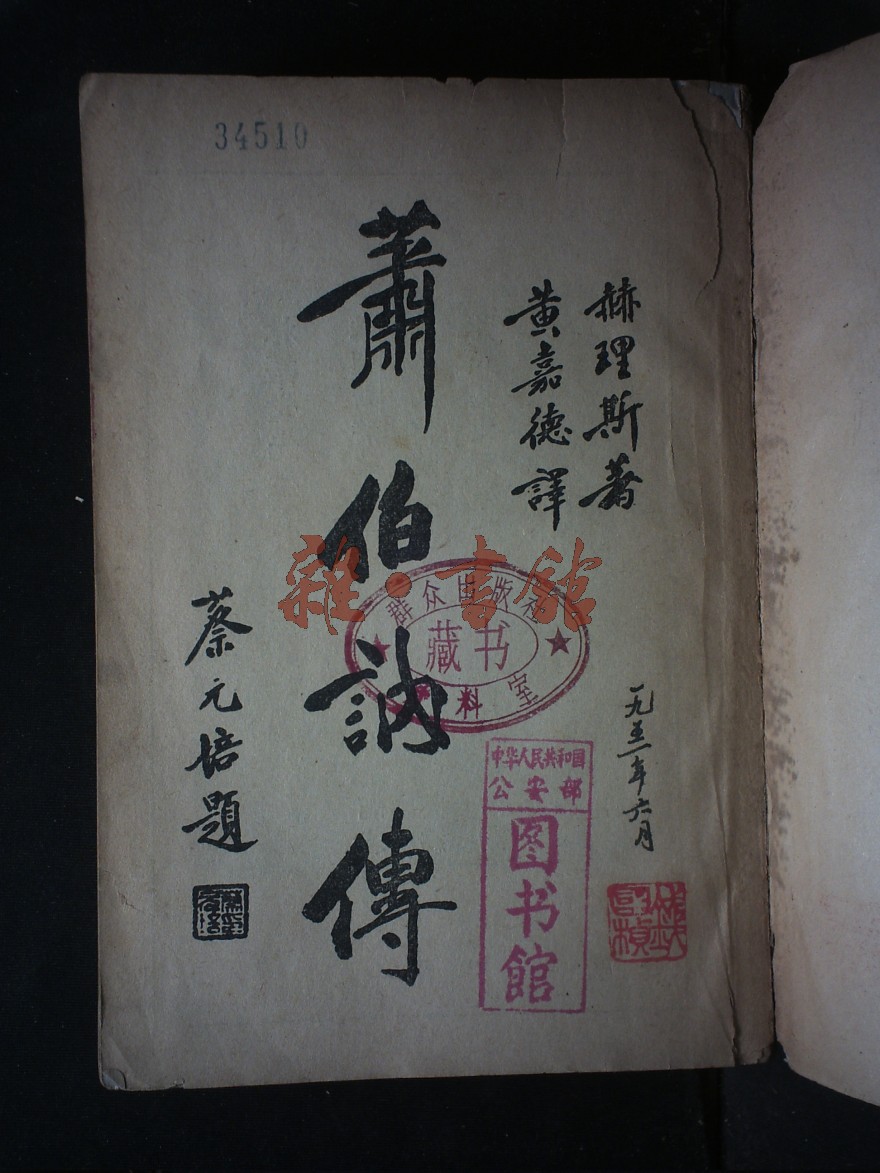 34510
赫理斯著
黄嘉德譯
蕭伯訥傳
蔡元培題
一九五一年六月
群众出版社
藏书
料室
中华人民共和国
公安部
图书馆
雜·書館